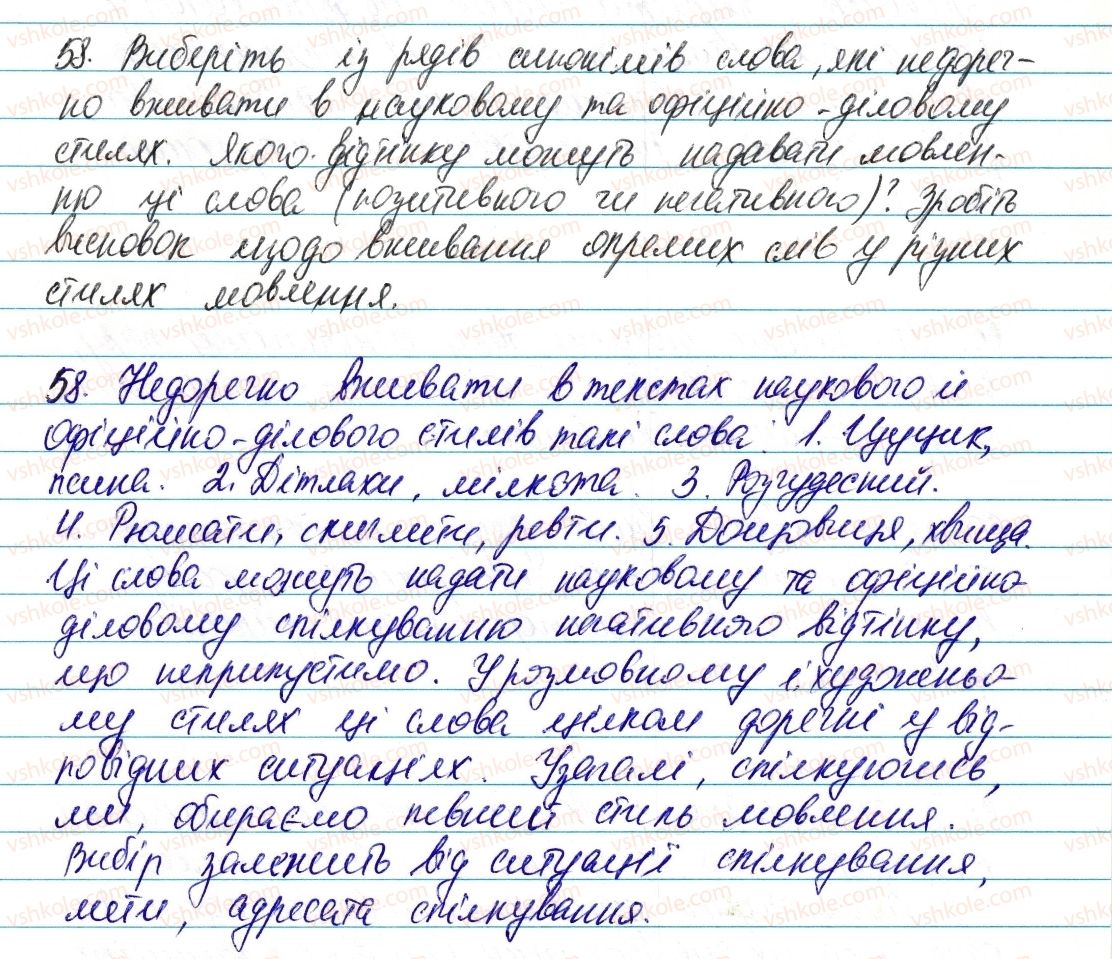 58. Виберіть із рядів синонімів слова, які недореч-
но вживати в науковому та офіційно-діловому
стилях. Якого відтінку можуть надавати мовлен-
ню ці слова (позитивного чи негативного)? Зробіть
висновок щодо вживання окремих слів у різних
стилях мовлення.
58. Недоречно вживати в текстах наукового й
офіційно-ділового стилів такі слова: 1. Цуцик,
псина. 2. Дітлахи, мілкота. 3. Розчудесний.
4. Рюмсати, скиглити, ревти. 5. Дощовиця, хвища.
Ці слова можуть надати науковому та офіційно-
діловому спілкуванню негативного відтінку,
що неприпустимо. У розмовному і художньо-
му стилях ці слова цілком доречні у від-
повідних ситуаціях. Узагалі, спілкуючись,
ми, обираємо певний стиль мовлення.
Вибір залежить від ситуації спілкування,
мети, адресата спілкування.